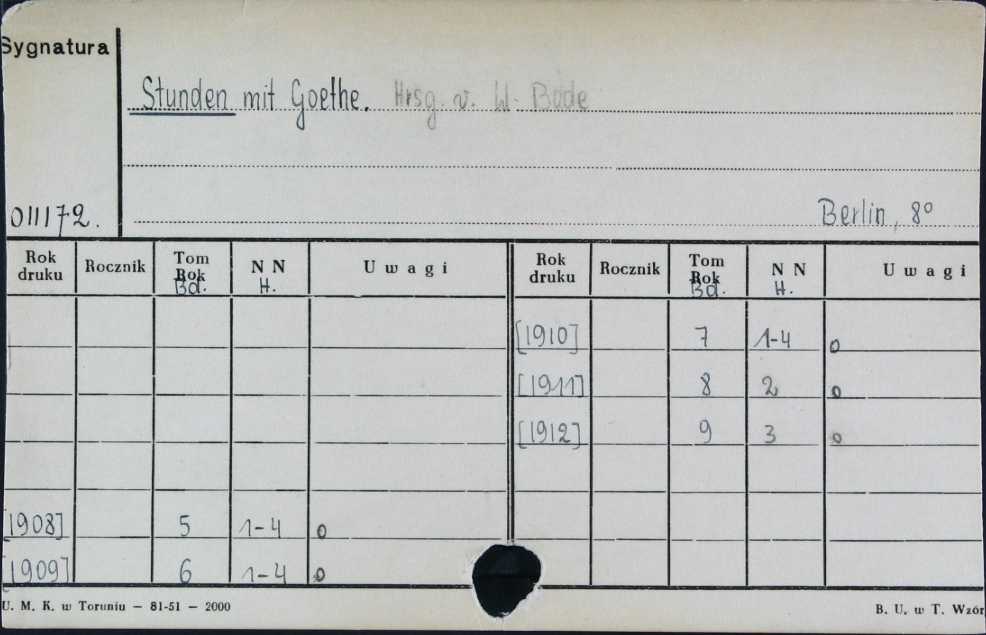 Sygnatura
Stunden mit Goethe. Hrsg. v. W. Bode
011172.
Berlin, 8°
Rok druku Rocznik Tom Rok Bd. N N H. Uwagi Rok druku Rocznik Tom Rok Bd. N N H. Uwagi
[1910] 7 1-4 o
[1911] 8 2 o
[1912] 9 3 o
[1908] 5 1-4 o
[1909] 6 1-4 o
U. M. K. w Toruniu — 81-51 — 2000
B. U. w T. Wzór